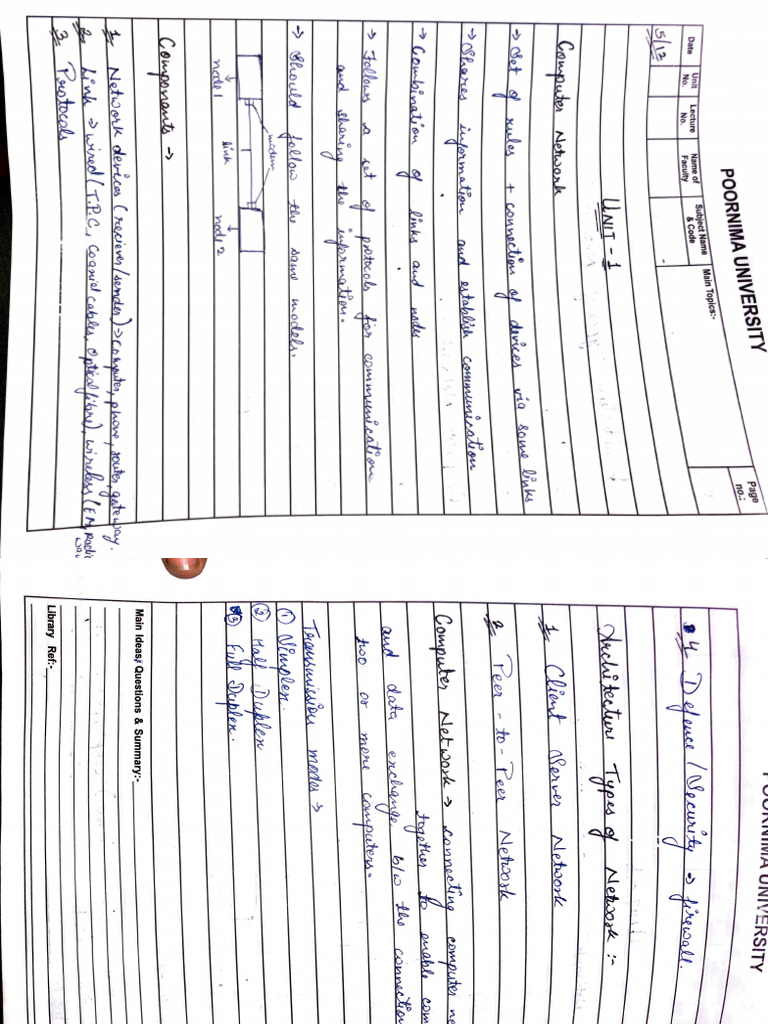 POORNIMA UNIVERSITY
Date
Unit No.
Lecture No.
Name of Faculty
Subject Name & Code
Main Topics:-
Page no.:
5/12
UNIT - 1
Computer Network
→ Set of rules + connection of devices via some links
→ Shares information and establish communication
→ Combination of links and nodes
→ Follows a set of protocols for communication
and sharing the information.
→ Should follow the same models.
modem
link
node 1
node 2
Components →
1. Network devices (reciever/sender) → computer, phone, router, gateway.
2. Link → wired (T.P.C, coaxial cables, optical fibre), wireless (EM, Radio
3. Protocols
POORNIMA UNIVERSITY
4 Defence / Security → firewall.
Architecture Types of Network :-
1. Client Server Network
2. Peer - to - Peer Network
Computer Network → connecting computer ne
together to enable com
and data exchange b/w the connection
two or more computers.
Transmission modes →
① Simplex.
② Half Duplex
③ Full Duplex.
Main Ideas/ Questions & Summary:-
Library Ref:-